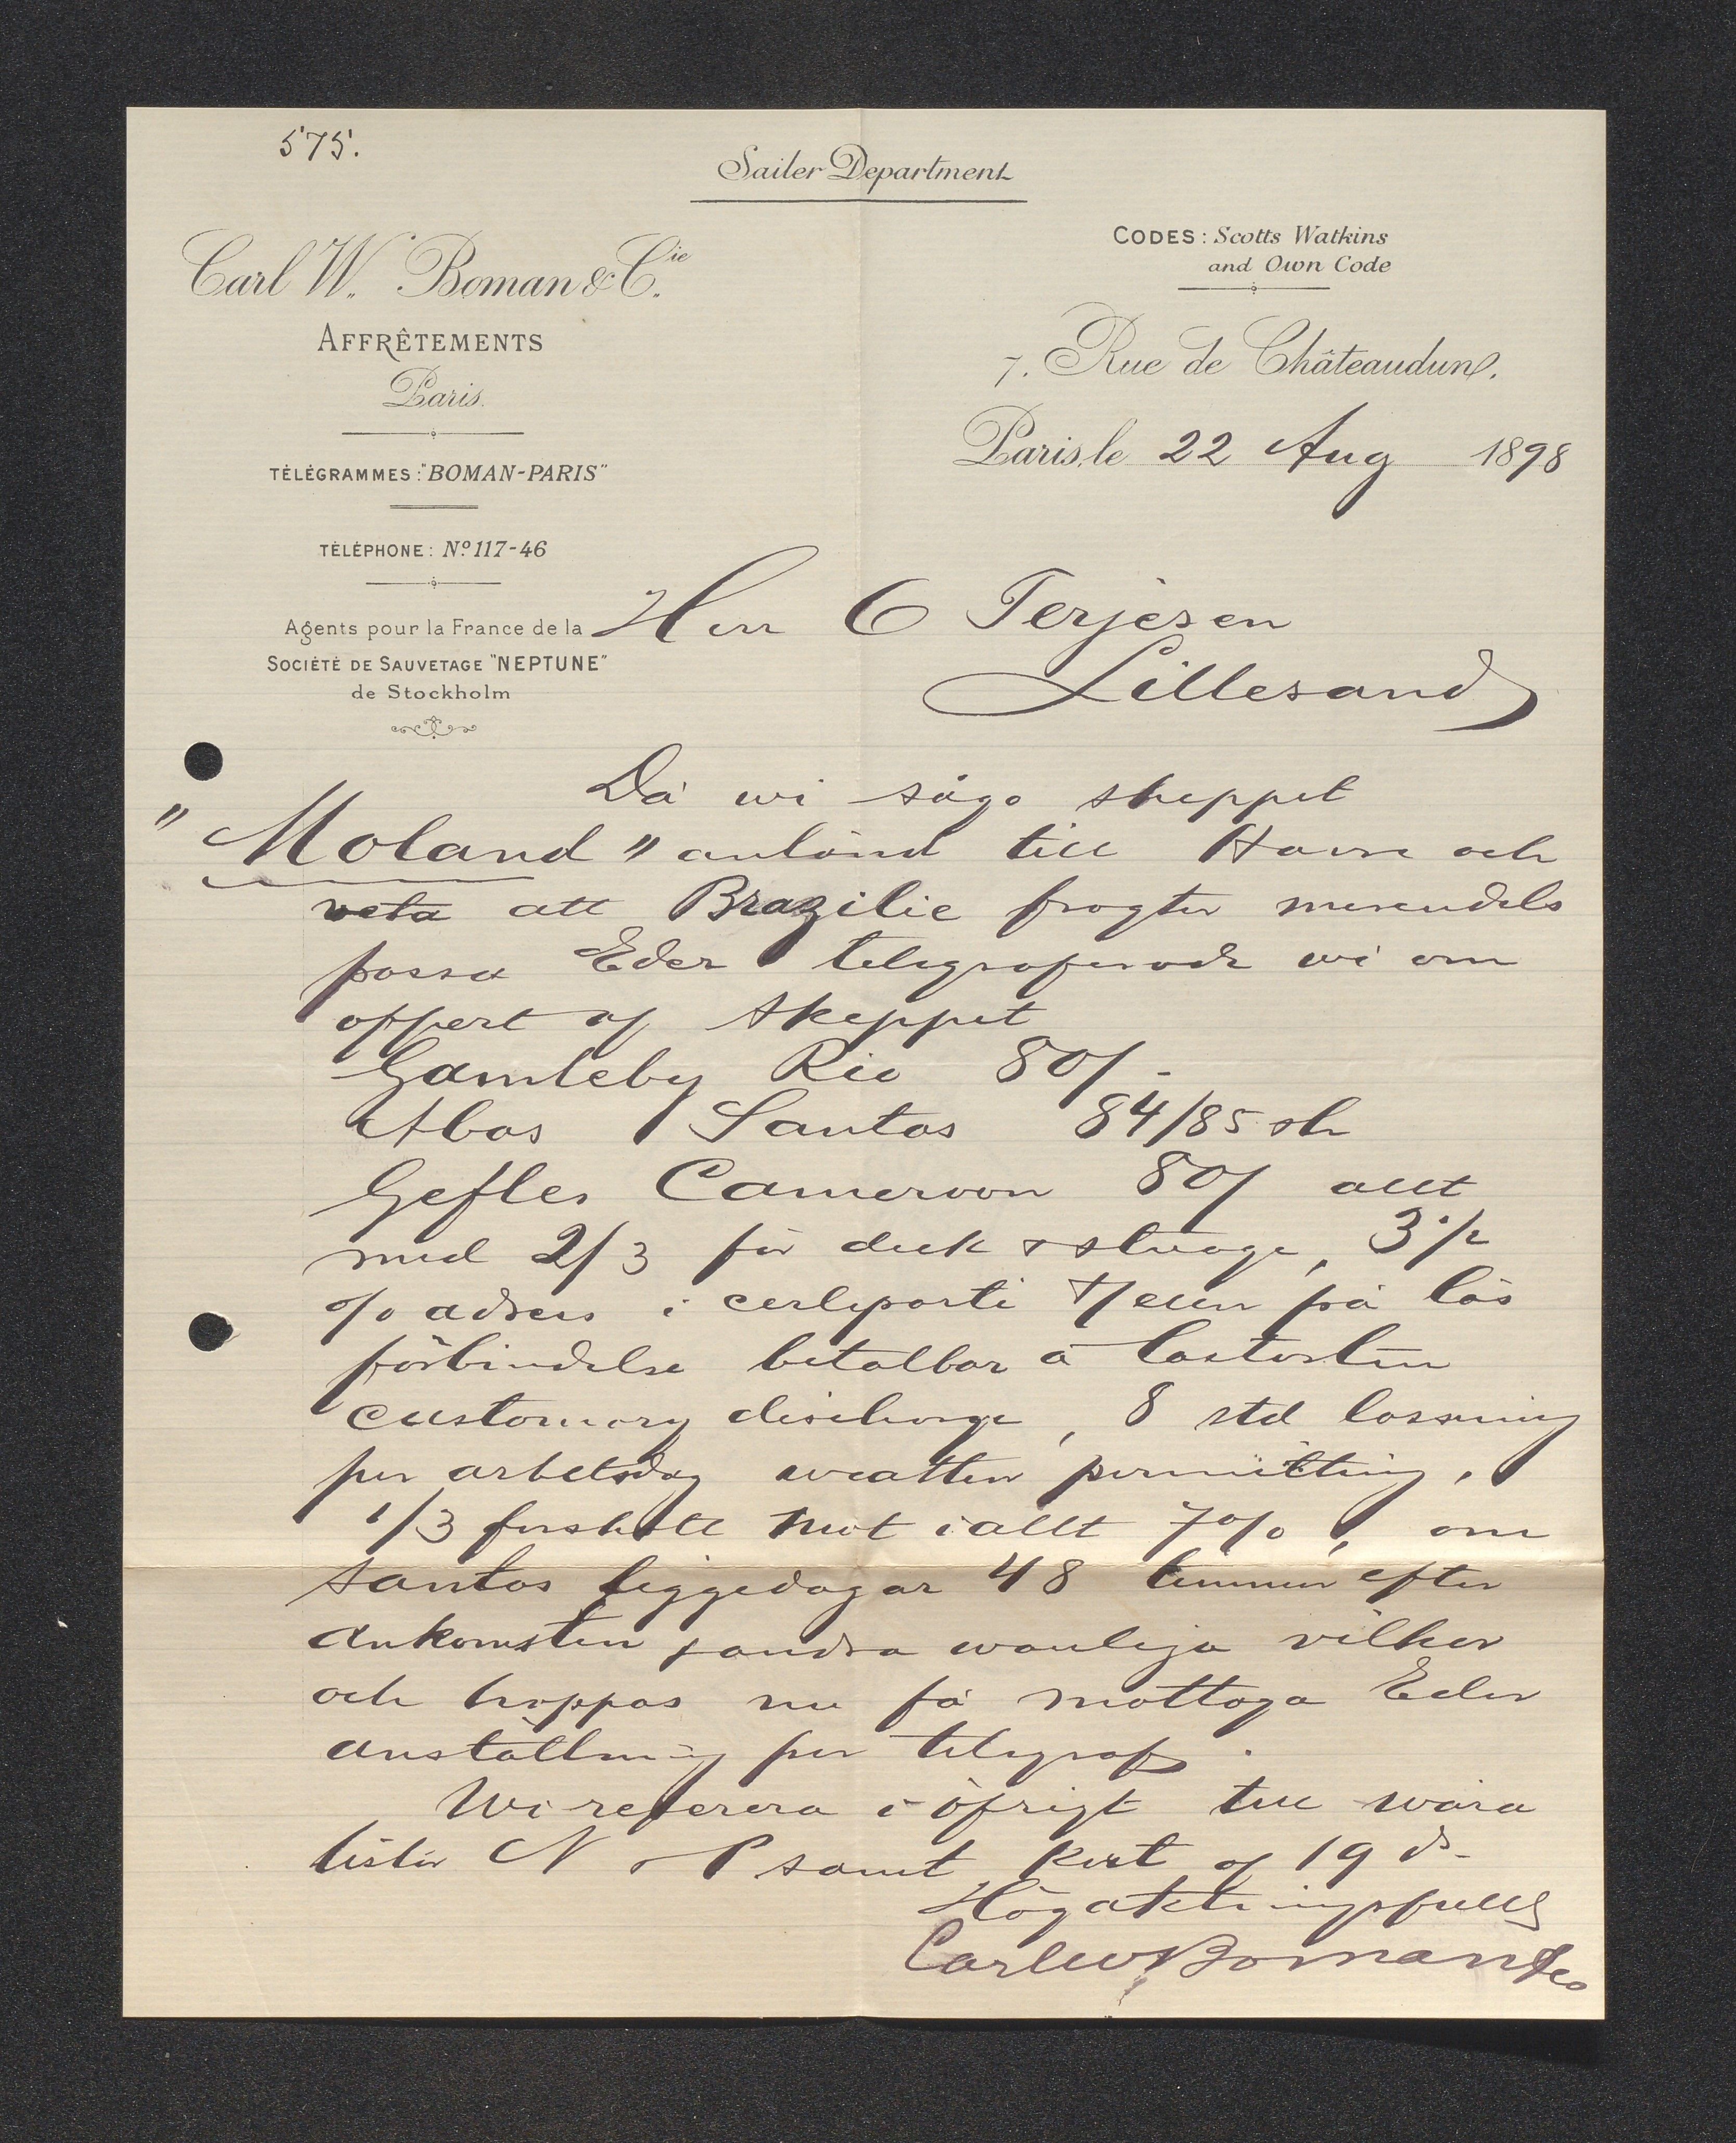 575.
Sailer Department
Carl W. Boman & Cie.
AFFRÊTEMENTS
Paris.
TÉLÉGRAMMES: "BOMAN-PARIS"
TÉLÉPHONE: No 117-46
Agents pour la France de la
SOCIÉTÉ DE SAUVETAGE "NEPTUNE"
de Stockholm
CODES: Scotts Watkins
and Own Code
7. Rue de Châteaudun.
Paris, le 22 Aug 1898
Herr O Terjesen
Lillesand
Då wi sågo skeppet
"Moland" anländ till Havre och
veta att Brazilie fragter merendels
passa Eder telegraferade wi om
offert af skeppet
Gamleby Rio 80/-
Abos Santos 84/85 sh
Gefles Cameroon 80/ allt
med 2/3 för deck & stuage, 3 1/2
% adress i certeparti eller på lös
förbindelse betalbar å lastorten
customary discharge, 8 std lossning
per arbetsdag weather permitting,
1/3 forskott mot i allt 7%, om
Santos liggedagar 48 timmar efter
ankomsten & andra wanliga vilkor
och hoppas nu få mottaga Eder
anställning per telegraf.
Wi referera i öfrigt till wåra
listor N & P samt kort af 19 ds
Högaktningsfullt
Carl W Boman & Co